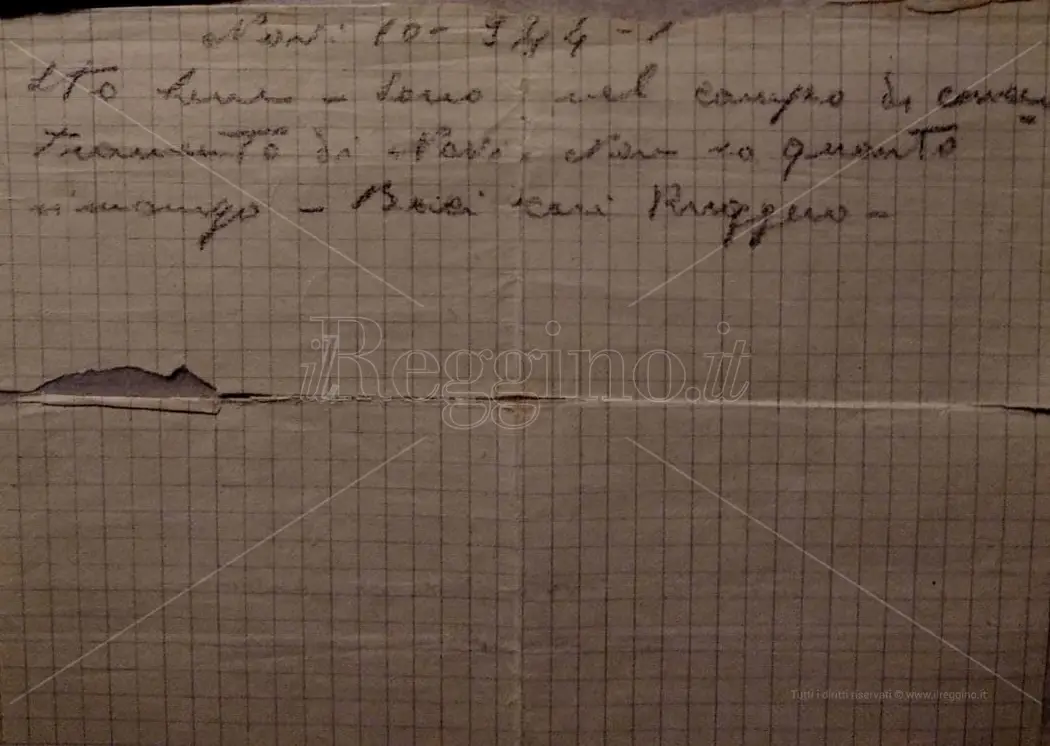 Novi 10-944-1
Sto bene - Sono nel campo di concen
tramento di Novi. Non so quanto
rimango - Baci cari Ruggero -
ilReggino.it
Tutti i diritti riservati © www.ilreggino.it